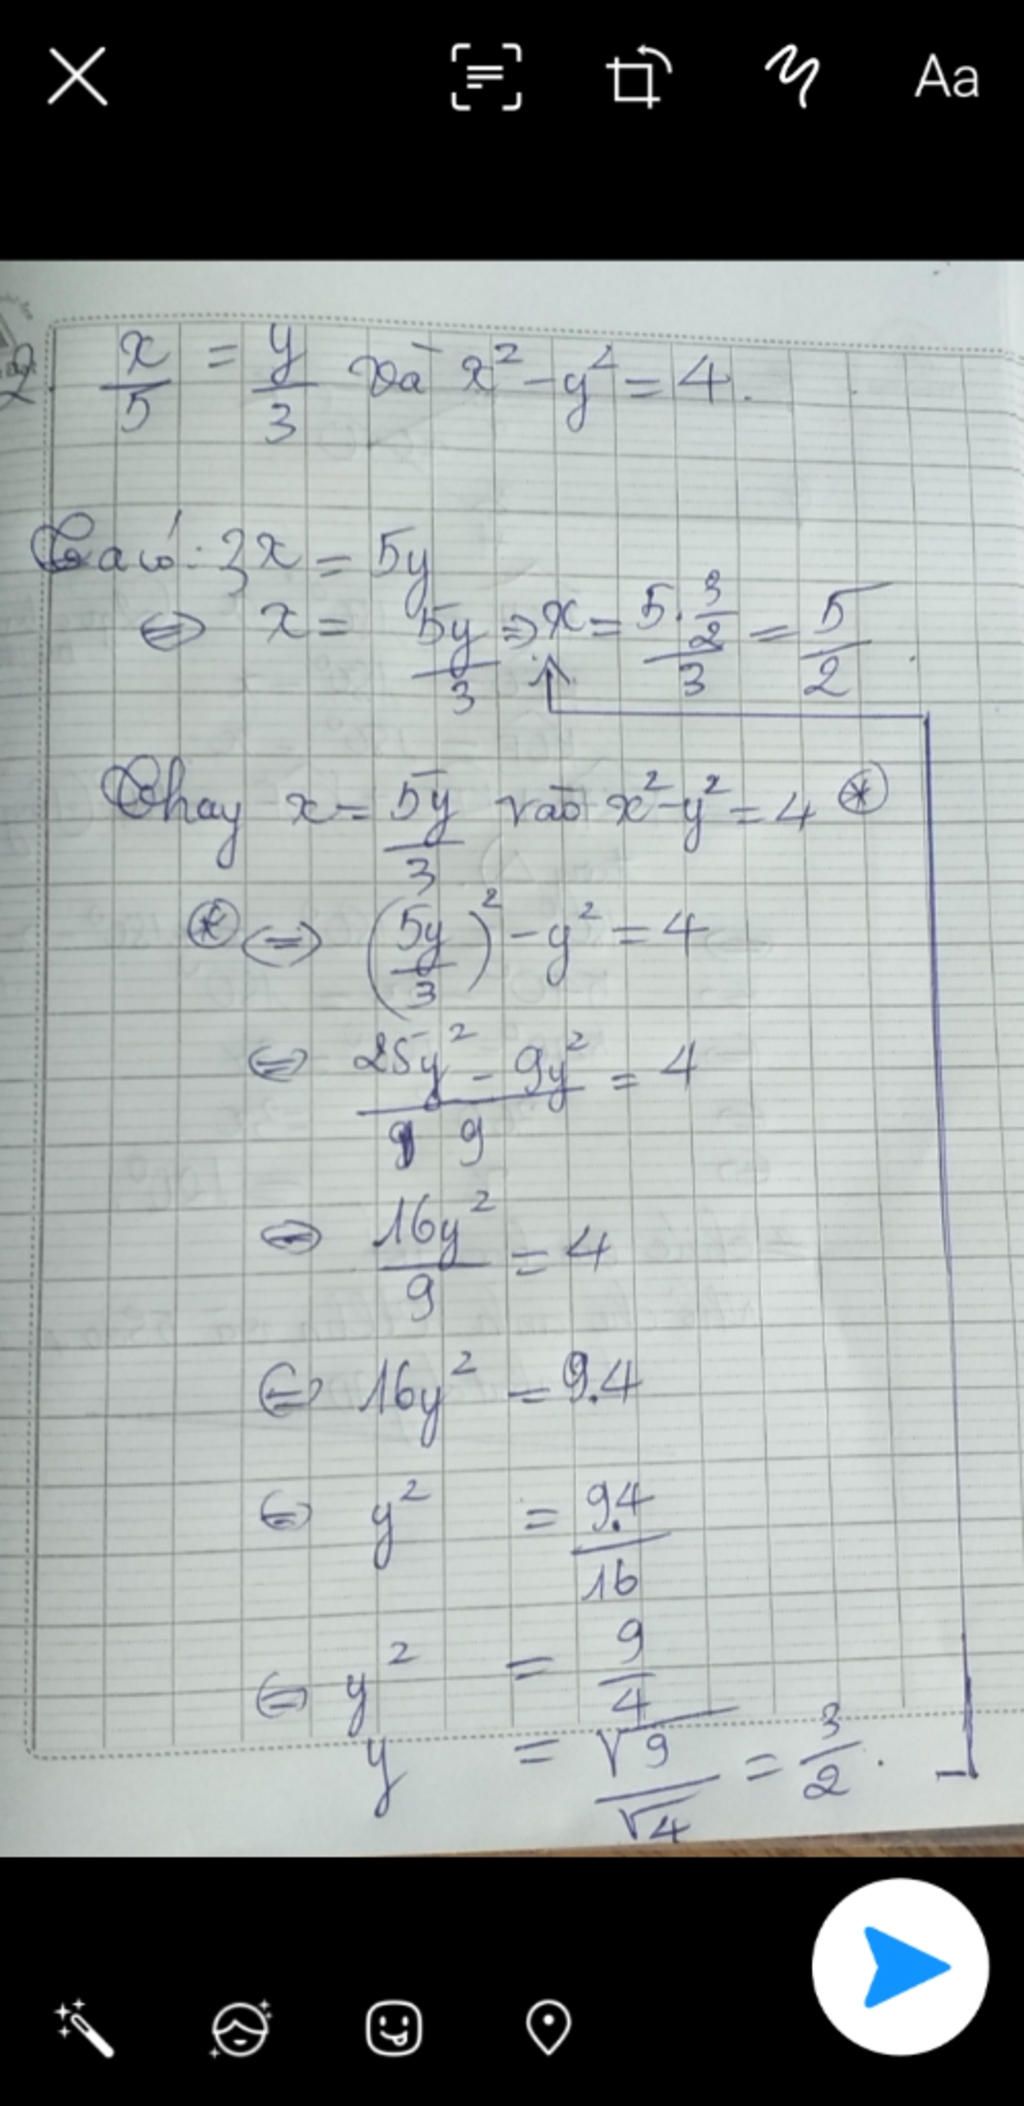 Aa
2. x/5 = y/3 và x² - y² = 4.
Ta có: 3x = 5y
⇔ x = 5y/3 ⇒ x = (5.3/2)/3 = 5/2.
Thay x = 5y/3 vào x² - y² = 4 (*)
(*) ⇔ (5y/3)² - y² = 4
⇔ 25y²/9 - 9y²/9 = 4
⇔ 16y²/9 = 4
⇔ 16y² = 9.4
⇔ y² = 9.4/16
⇔ y² = 9/4
y = √9/√4 = 3/2.